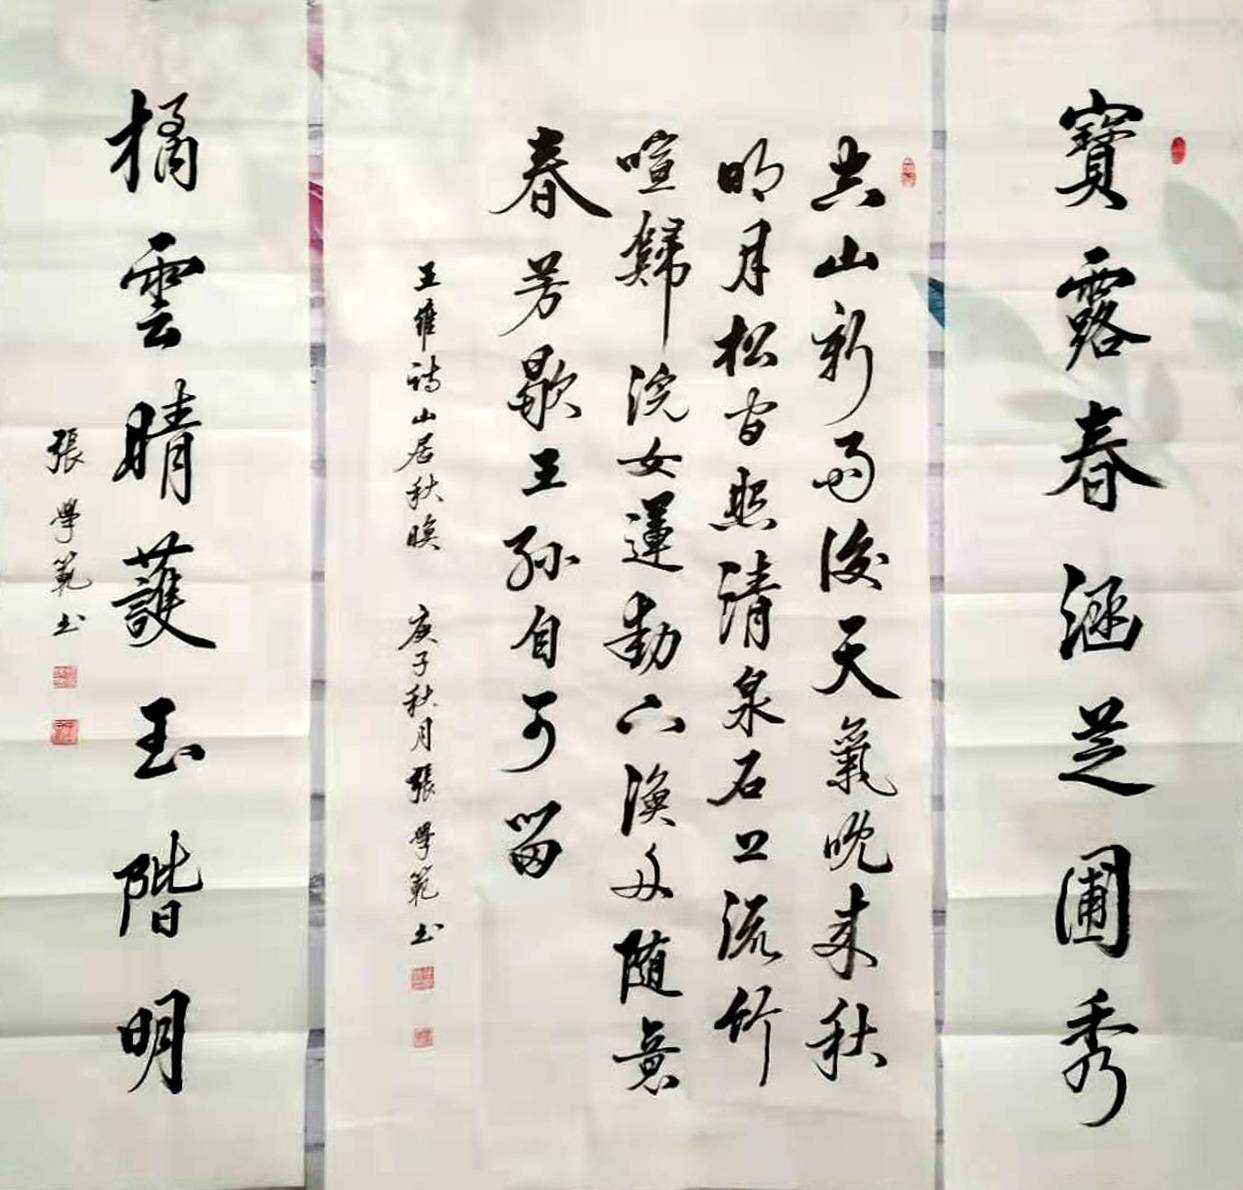 寶露春涵芝圃秀
空山新雨後天氣晚来秋
明月松间照清泉石上流竹
喧歸浣女蓮動下漁舟随意
春芳歇王孙自可留
王維詩山居秋暝 庚子秋月張學範书
橘雲晴護玉階明
張學範书